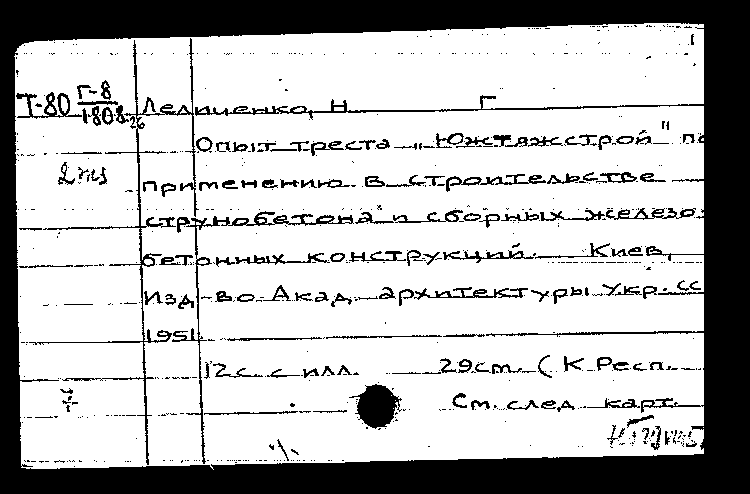 Т-80 Г-8
1808-26
Леличенко, Н Г
Опыт треста „Южтяжстрой" по
2 экз
применению в строительстве
струнобетона и сборных железо-
бетонных конструкций. Киев,
Изд-во Акад. архитектуры Укр.СС
1951.
12с. с илл. 29см. (К Респ.
См. след карт.